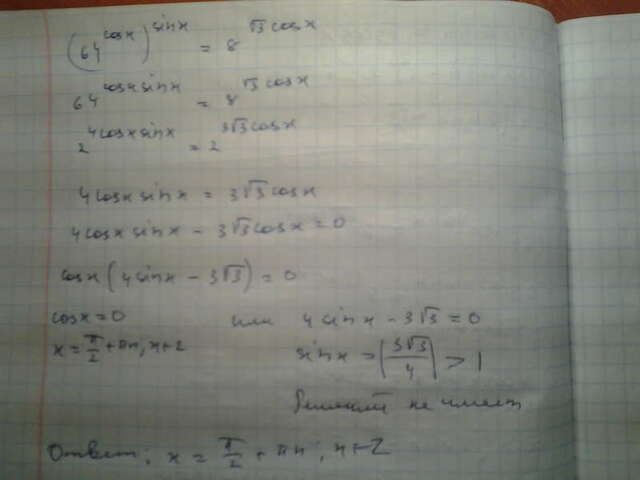 (64^cosx)^sinx = 8^√3cosx
64^cosxsinx = 8^√3cosx
2^4cosxsinx = 2^3√3cosx
4cosxsinx = 3√3cosx
4cosxsinx - 3√3cosx = 0
cosx(4sinx - 3√3) = 0
cosx=0 или 4sinx - 3√3 = 0
x = π/2 + πn, n∈Z sinx = |3√3/4| > 1
Решений не имеет
Ответ: x = π/2 + πn; n∈Z